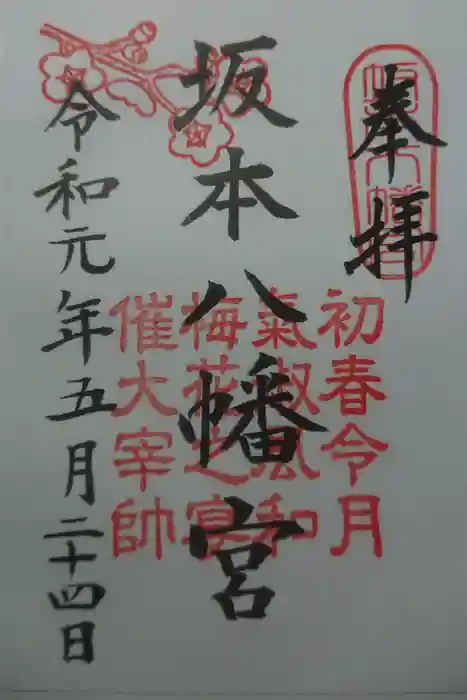 奉拝
坂本八幡宮
令和元年五月二十四日
初春令月
氣淑風和
梅花之宴
催大宰帥